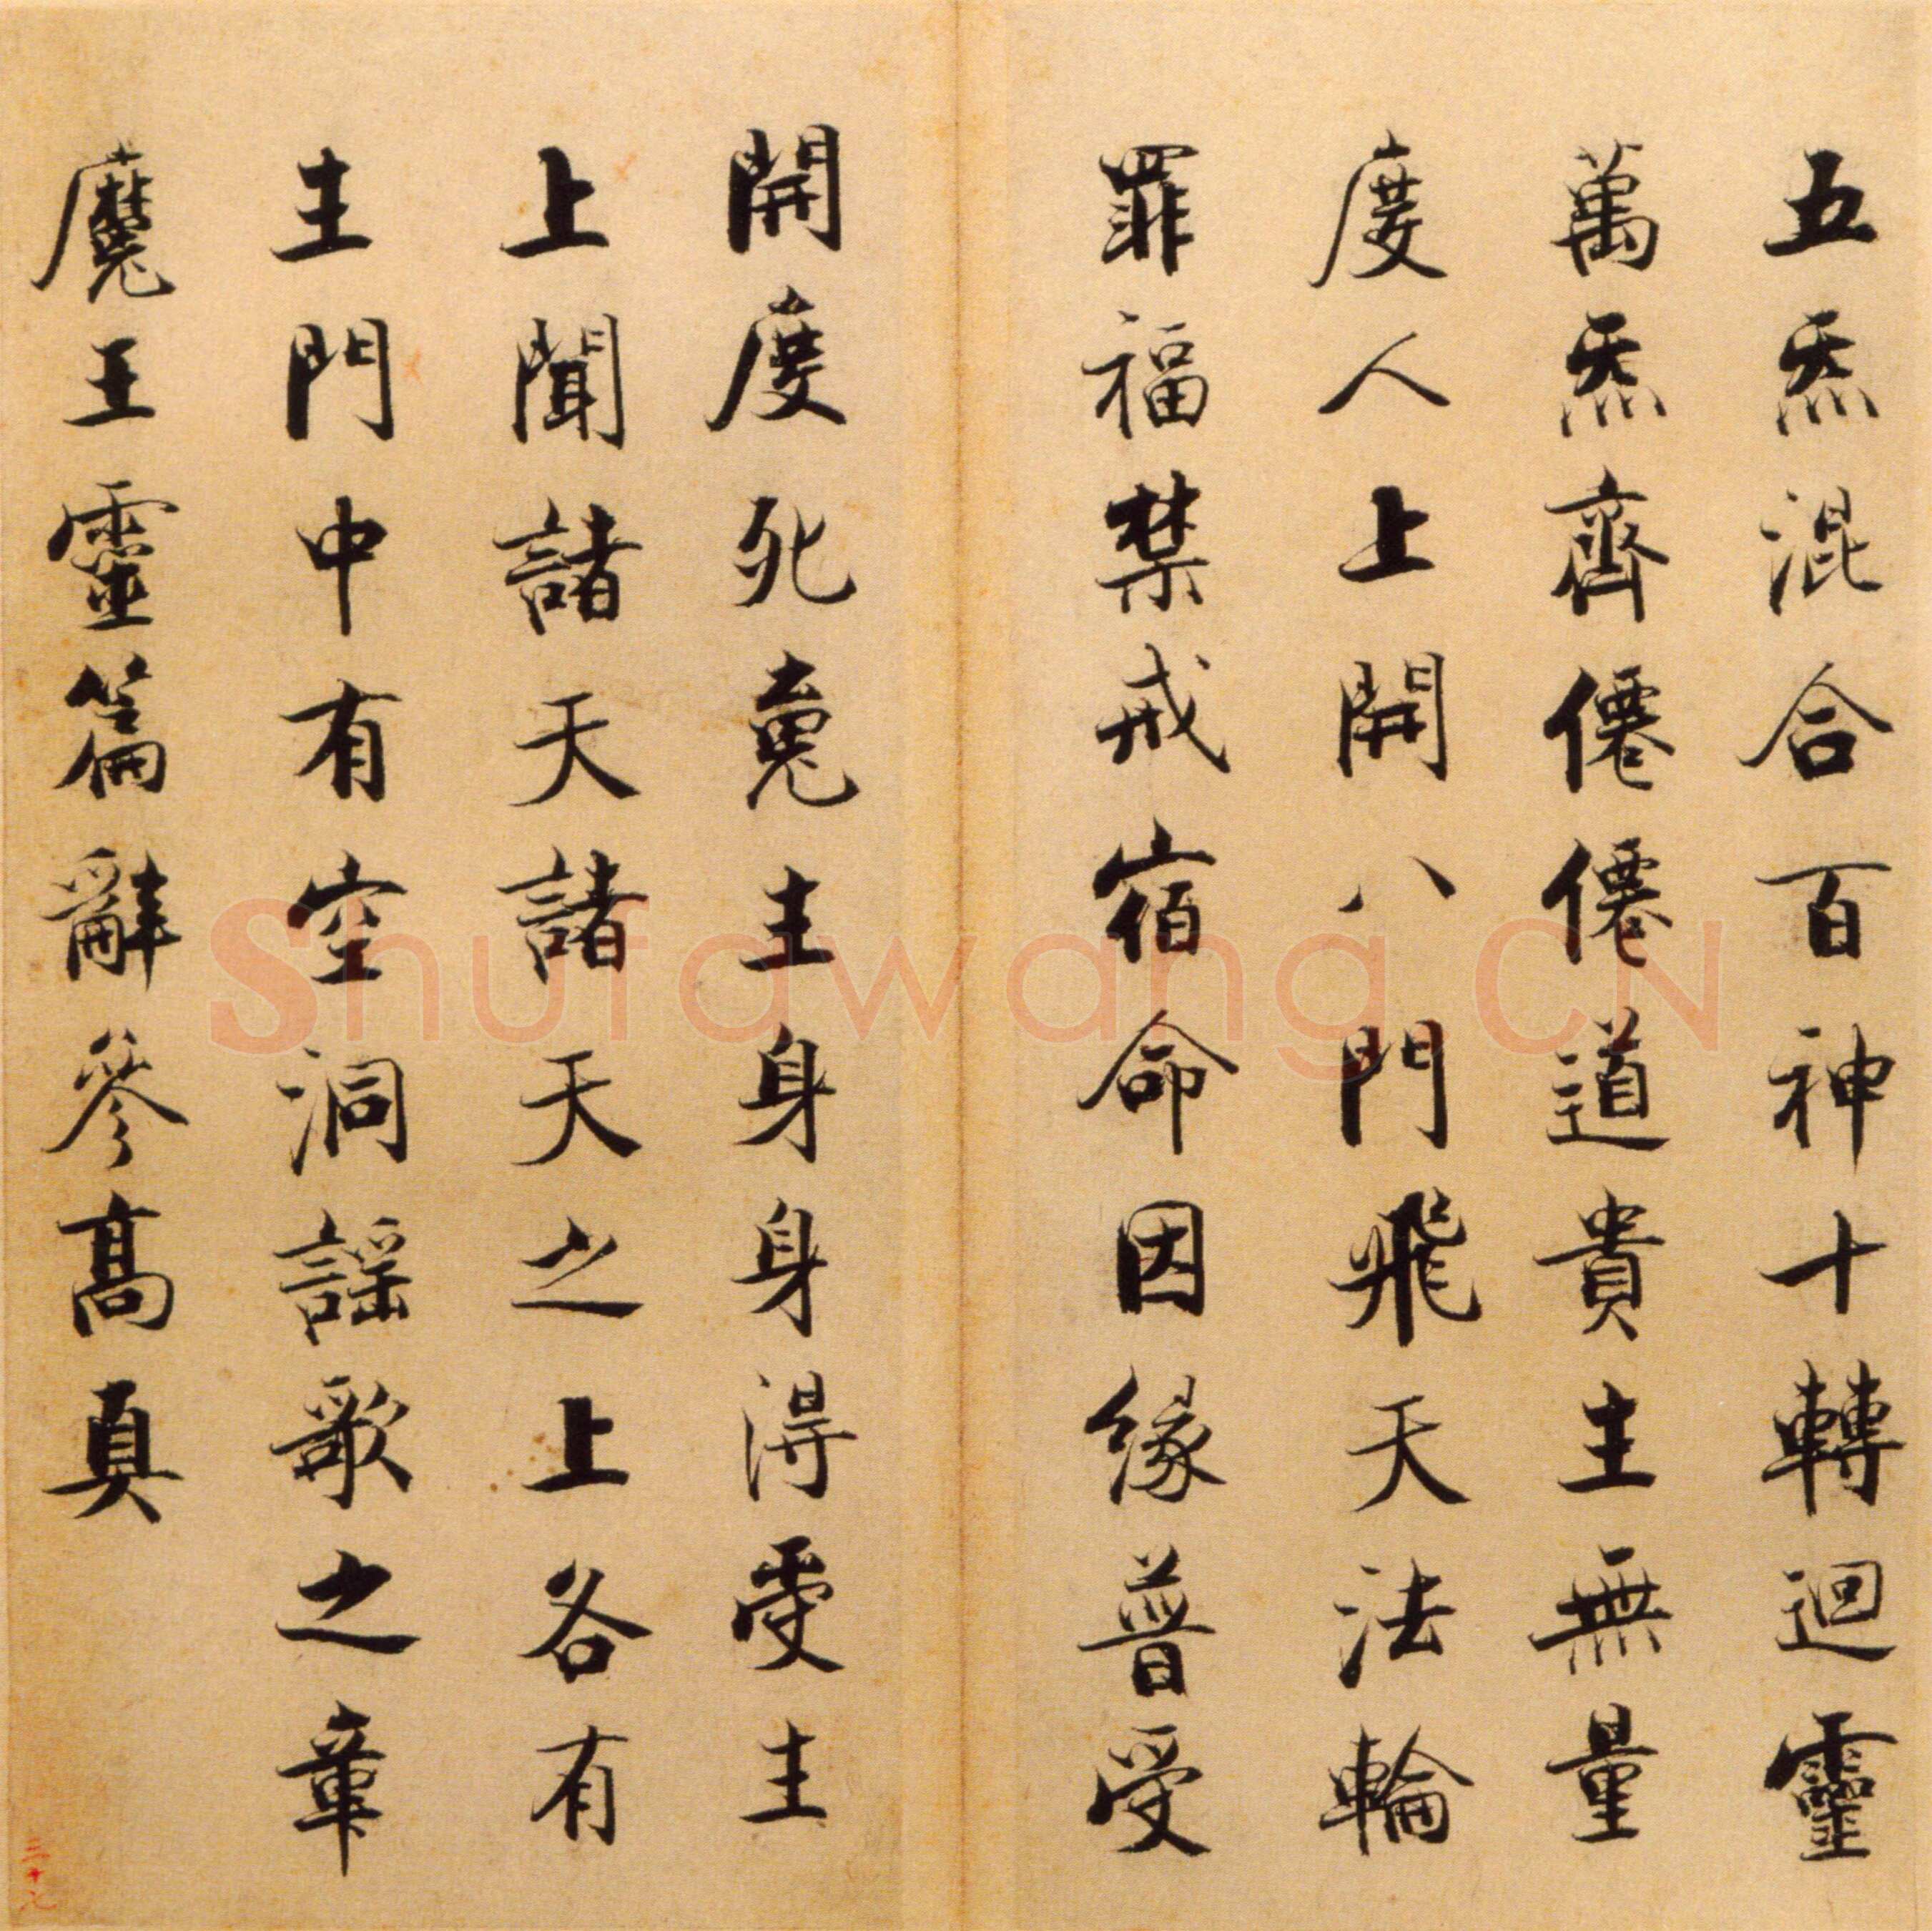 五炁混合百神十轉迴靈
萬炁齊僊僊道貴主無量
度人上開八門飛天法輪
罪福禁戒宿命因緣普受
開度死𩲸主身身得受主
上聞諸天諸天之上各有
主門中有空洞謠歌之章
魔王靈篇辭參高真
三十八
Shufawang.CN